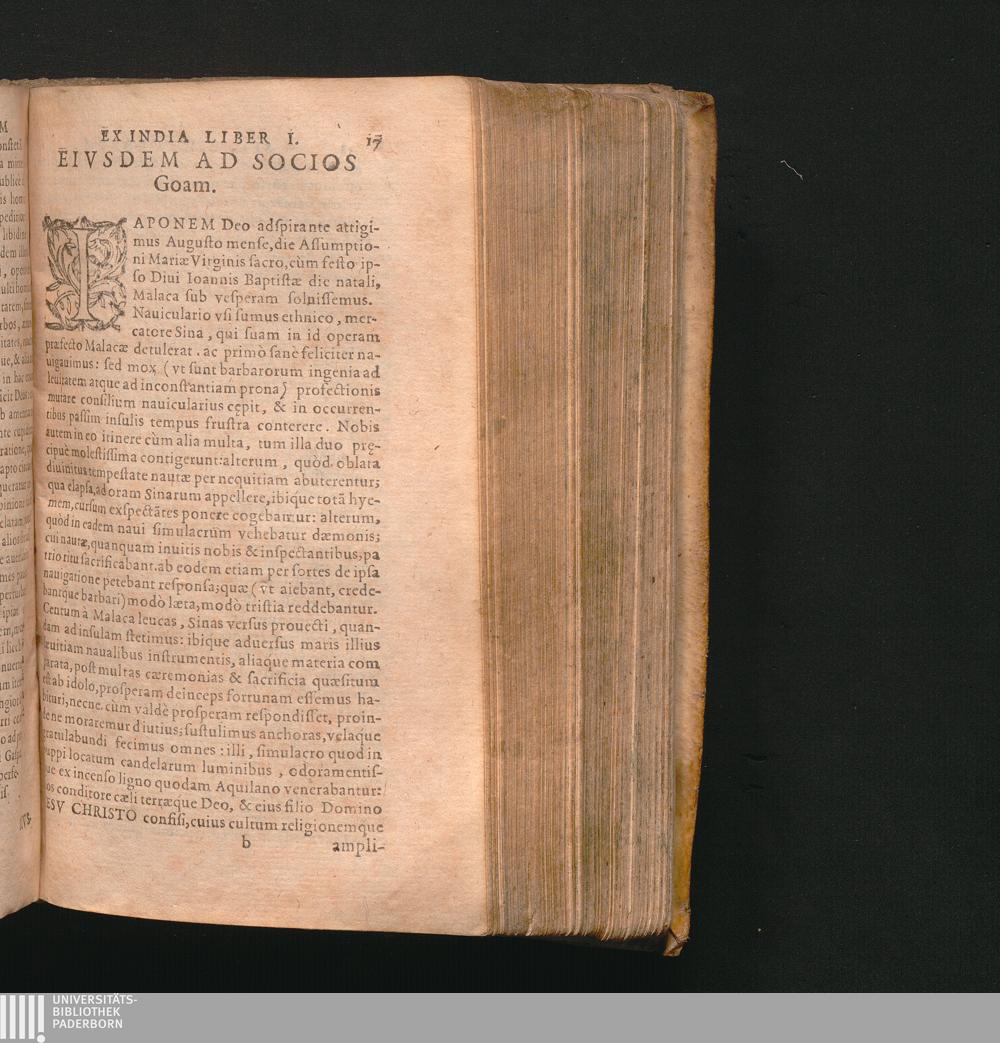 EX INDIA LIBER I. 17
EIVSDEM AD SOCIOS
Goam.
IAPONEM Deo adſpirante attigi-
mus Auguſto menſe, die Aſſumptio-
ni Mariæ Virginis ſacro, cùm feſto ip-
ſo Diui Ioannis Baptiſtæ die natali,
Malaca ſub veſperam ſolniſſemus.
Nauiculario vſi ſumus ethnico, mer-
catore Sina, qui ſuam in id operam
præfecto Malacæ detulerat. ac primò ſanè feliciter na-
uigauimus: ſed mox (vt ſunt barbarorum ingenia ad
leuitatem atque ad inconſtantiam prona) profectionis
mutare conſilium nauicularius cępit, & in occurren-
tibus paſſim inſulis tempus fruſtra conterere. Nobis
autem in eo itinere cùm alia multa, tum illa duo prę-
cipuè moleſtiſſima contigerunt: alterum, quòd oblata
diuinitus tempeſtate nautæ per nequitiam abuterentur;
qua elapſa, ad oram Sinarum appellere, ibique totã hye-
mem, curſum exſpectãtes ponere cogebamur: alterum,
quòd in eadem naui ſimulacrum vehebatur dæmonis;
cui nautæ, quanquam inuitis nobis & inſpectantibus, pa
trio ritu ſacrificabant. ab eodem etiam per ſortes de ipſa
nauigatione petebant reſponſa; quæ (vt aiebant, crede-
bantque barbari) modò læta, modò triſtia reddebantur.
Centum à Malaca leucas, Sinas verſus prouecti, quan-
dam ad inſulam ſtetimus: ibique aduerſus maris illius
æuitiam naualibus inſtrumentis, aliaque materia com
parata, poſt multas cæremonias & ſacrificia quæſitum
eſt ab idolo, proſperam deinceps fortunam eſſemus ha-
bituri, necne. cùm valdè proſperam reſpondiſſet, proin-
de ne moraremur diutius; ſuſtulimus anchoras, velaque
gratulabundi fecimus omnes: illi, ſimulacro quod in
puppi locatum candelarum luminibus, odoramentiſ-
que ex incenſo ligno quodam Aquilano venerabantur:
nos conditore cæli terræque Deo, & eius filio Domino
IESV CHRISTO confiſi, cuius cultum religionemque
b ampli-
UNIVERSITÄTS-
BIBLIOTHEK
PADERBORN